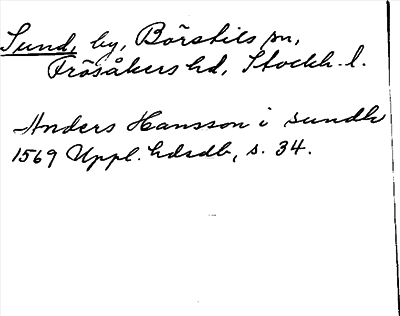 Sund, by, Börstils sn,
Frösåkers hd, Stockh. l.
Anders Hansson i sundh
1569 Uppl. hdrdb, s. 34.